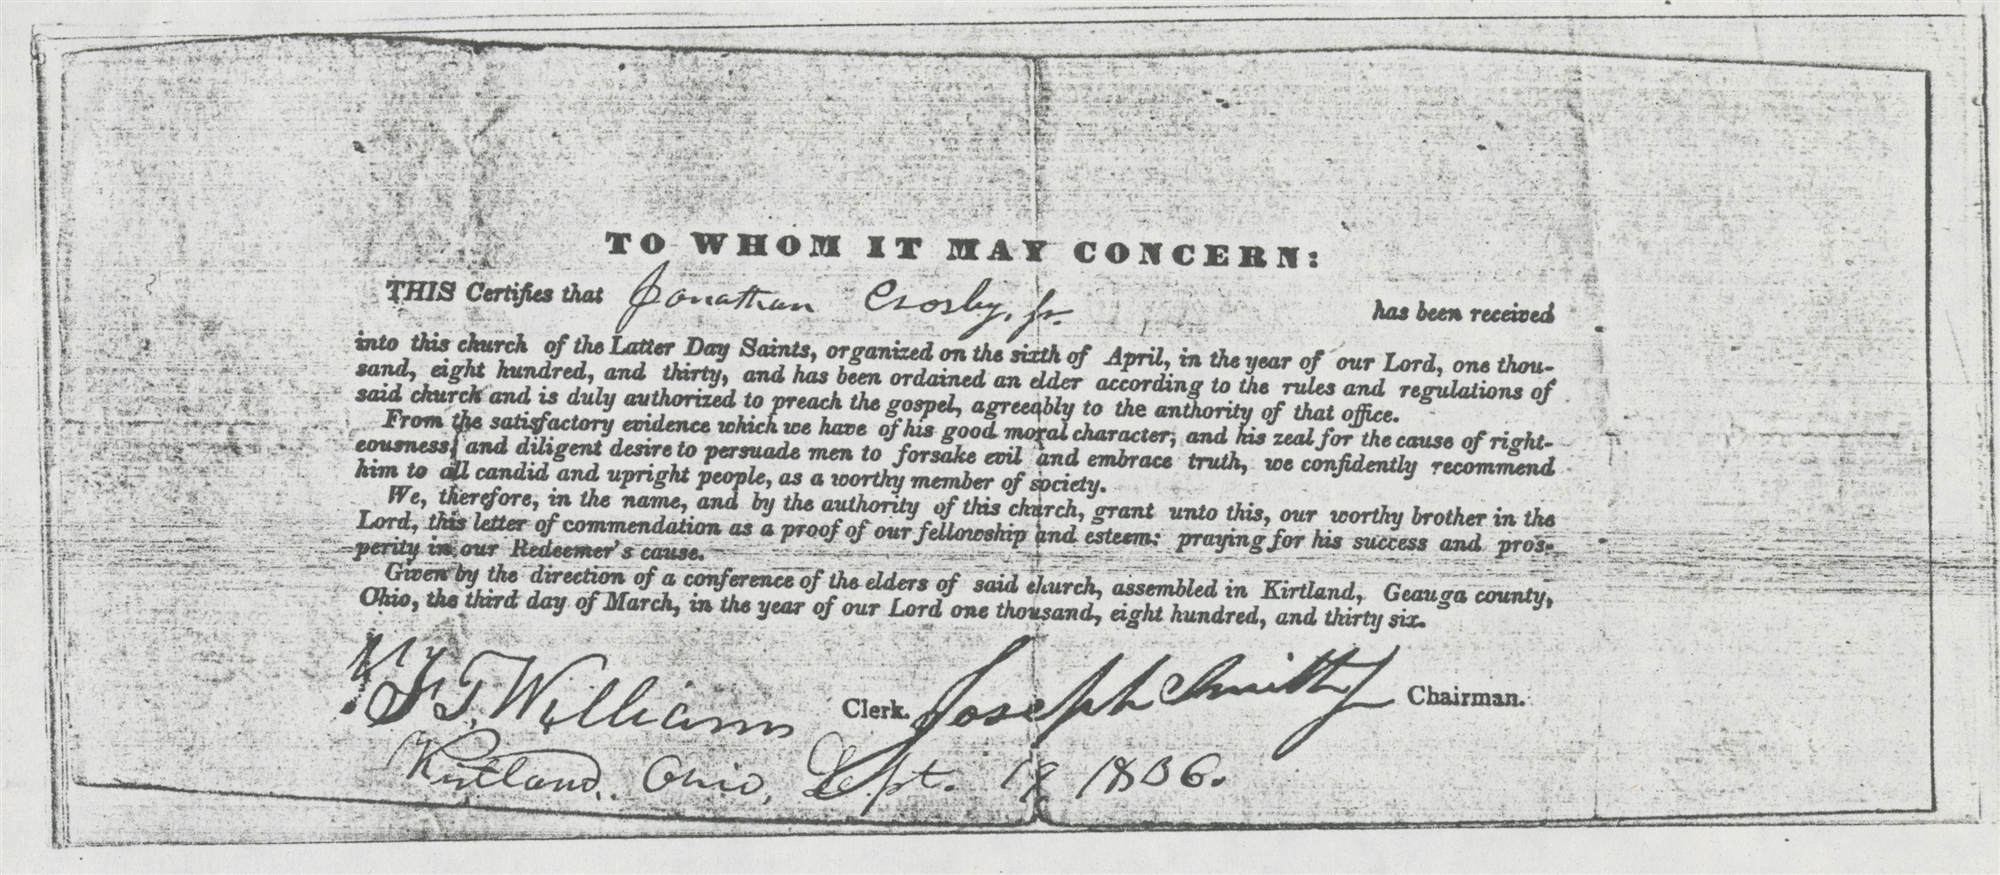 TO WHOM IT MAY CONCERN:
THIS Certifies that Jonathan Crosby, jr. has been received
into this church of the Latter Day Saints, organized on the sixth of April, in the year of our Lord, one thou-
sand, eight hundred, and thirty, and has been ordained an elder according to the rules and regulations of
said church and is duly authorized to preach the gospel, agreeably to the anthority of that office.
From the satisfactory evidence which we have of his good moral character, and his zeal for the cause of right-
eousness, and diligent desire to persuade men to forsake evil and embrace truth, we confidently recommend
him to all candid and upright people, as a worthy member of society.
We, therefore, in the name, and by the authority of this church, grant unto this, our worthy brother in the
Lord, this letter of commendation as a proof of our fellowship and esteem: praying for his success and pros-
perity in our Redeemer's cause.
Given by the direction of a conference of the elders of said church, assembled in Kirtland, Geauga county,
Ohio, the third day of March, in the year of our Lord one thousand, eight hundred, and thirty six.
F. G. Williams Clerk. Joseph Smith Jr Chairman.
Kirtland, Ohio, Sept. 1836.